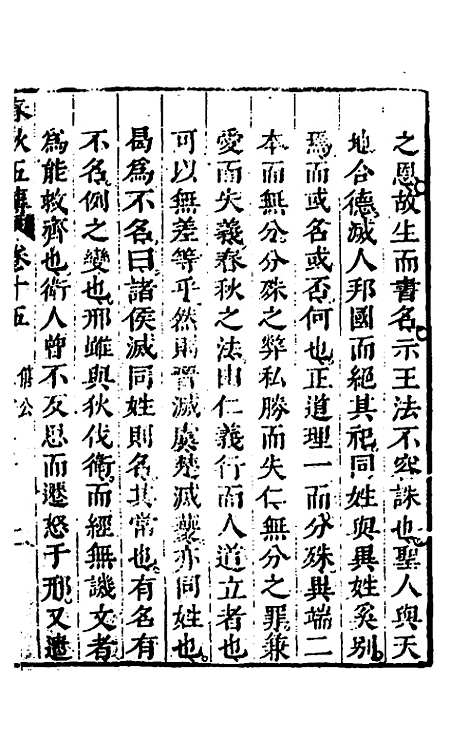 之恩故生而書名示王法不容誅也聖人與天
地合德滅人邦國而絕其祀同姓與異姓奚別
焉而或名或否何也正道理一而分殊異端二
本而無分分殊之弊私勝而失仁無分之罪兼
愛而失義春秋之法由仁義行而人道立者也
可以無差等乎然則晉滅虞楚滅夔亦同姓也
曷爲不名曰諸侯滅同姓則名其常也有名有
不名例之變也邢雖與狄伐衛而經無譏文者
爲能救齊也衛人曾不反思而遷怒于邢又遣
春秋五傳 卷十五 僖公